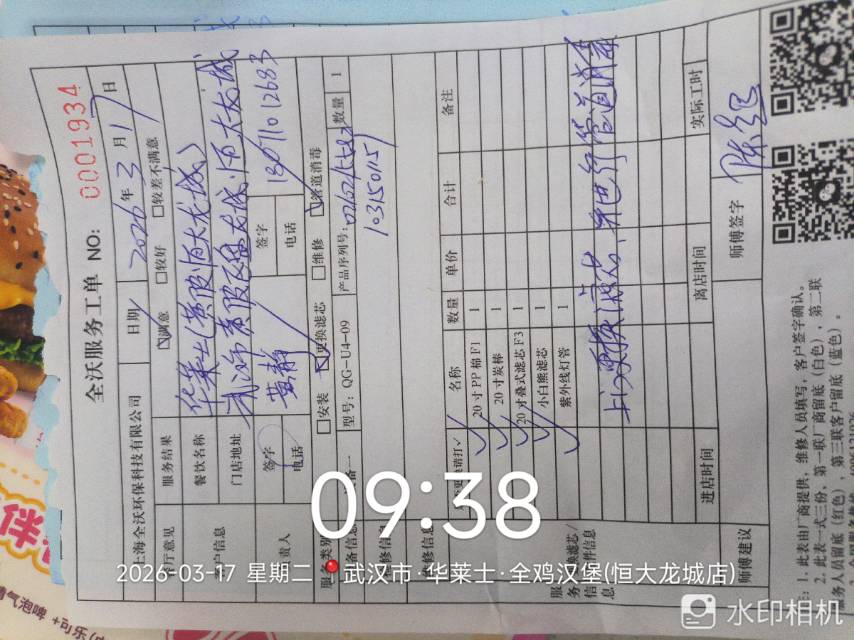 全沃服务工单 NO: 0001934
上海全沃环保科技有限公司 日期 2026年3月17日
客户意见 服务结果 ☑满意 □较好 □较差不满意
客户信息 餐饮名称 华莱士(黄陂恒大龙城)
门店地址 武汉市黄陂区恒大龙城
负责人 签字 黄静 签字
电话 电话
服务类别 □安装 ☑更换滤芯 □维修 ☑管道消毒
设备信息 设备一 型号: QG-U4-09 产品序列号: 数量 1
13150157
维修信息
名称 数量 单价 合计 备注
20寸PP棉F1 1
20寸炭棒 1
20寸叠式滤芯F3 1
小白熊滤芯 1
紫外线灯管 1
更换滤芯/
配件信息
上门更换滤芯,并进行管道消毒
进店时间 离店时间 实际工时
师傅建议 师傅签字
注: 1. 此表由厂商提供,维修人员填写,客户签字确认。
2. 此表一式三份,第一联厂商留底(白色),第二联
服务人员留底(红色),第三联客户留底(蓝色)。
09:38
2026-03-17 星期二 武汉市·华莱士·全鸡汉堡(恒大龙城店)
水印相机
伴
气泡啤 +可乐